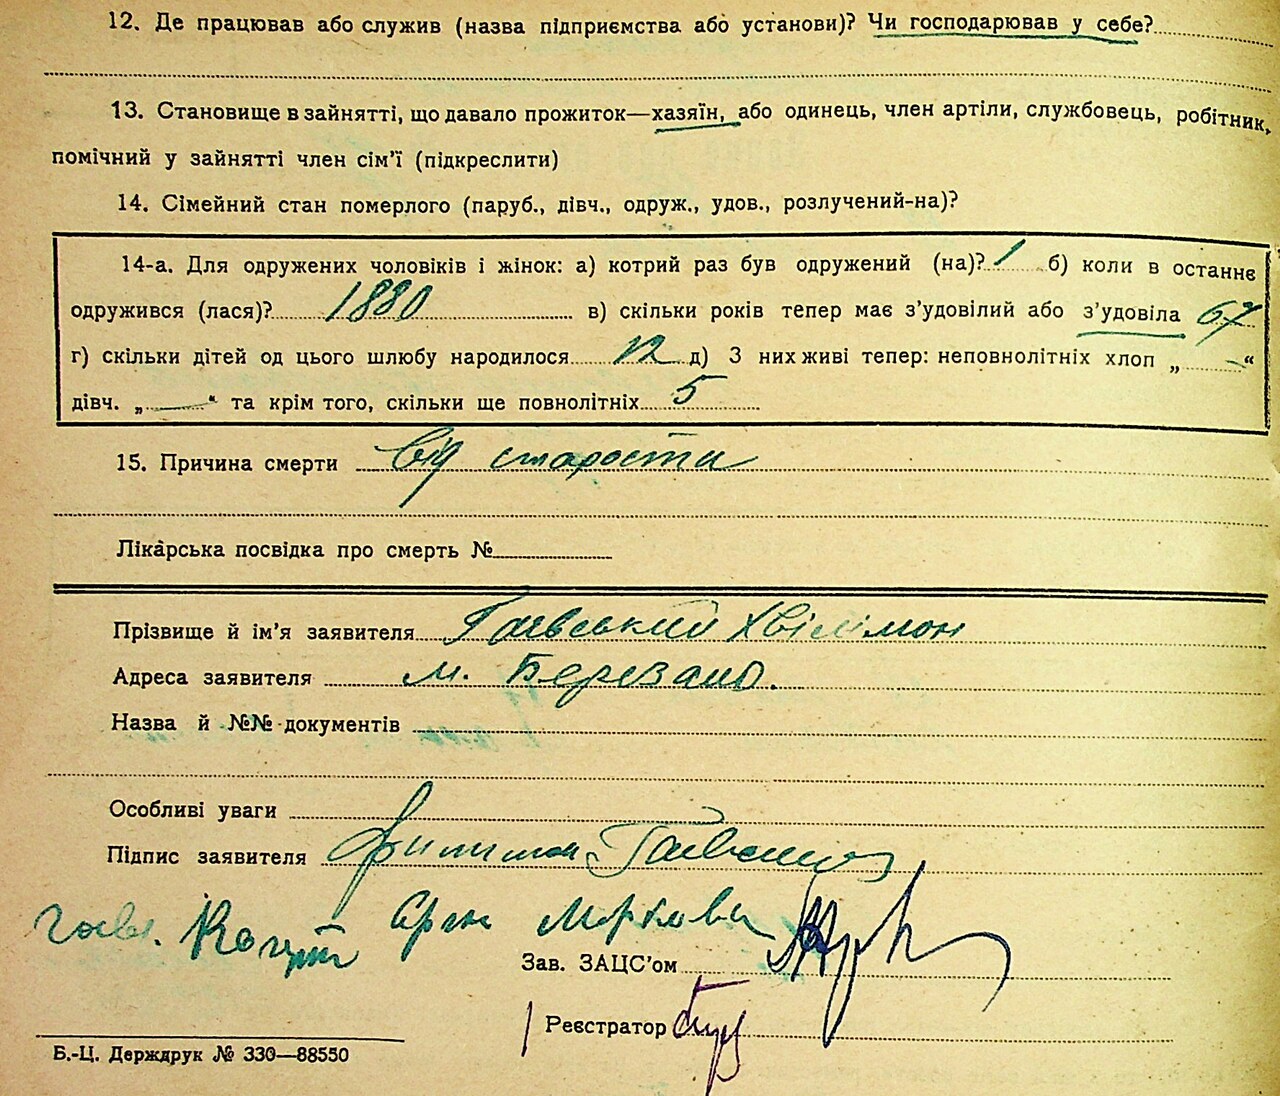 12. Де працював або служив (назва підприємства або установи)? Чи господарював у себе?
13. Становище в зайнятті, що давало прожиток—хазяїн, або одинець, член артіли, службовець, робітник,
помічний у зайнятті член сім’ї (підкреслити)
14. Сімейний стан померлого (паруб., дівч., одруж., удов., розлучений-на)?
14-а. Для одружених чоловіків і жінок: а) котрий раз був одружений (на)? 1 б) коли в останнє
одружився (лася)? 1880 в) скільки років тепер має з’удовілий або з’удовіла 67
г) скільки дітей од цього шлюбу народилося 12 д) З них живі тепер: неповнолітніх хлоп „ — “
дівч. „ — “ та крім того, скільки ще повнолітніх 5
15. Причина смерти від старости
Лікарська посвідка про смерть №
Прізвище й ім’я заявителя Гаєвський Хвілімон
Адреса заявителя м. Березань.
Назва й №№ документів
Особливі уваги
Підпис заявителя
Зав. ЗАЦС’ом
Реєстратор
Б.-Ц. Держдрук № 330—88550